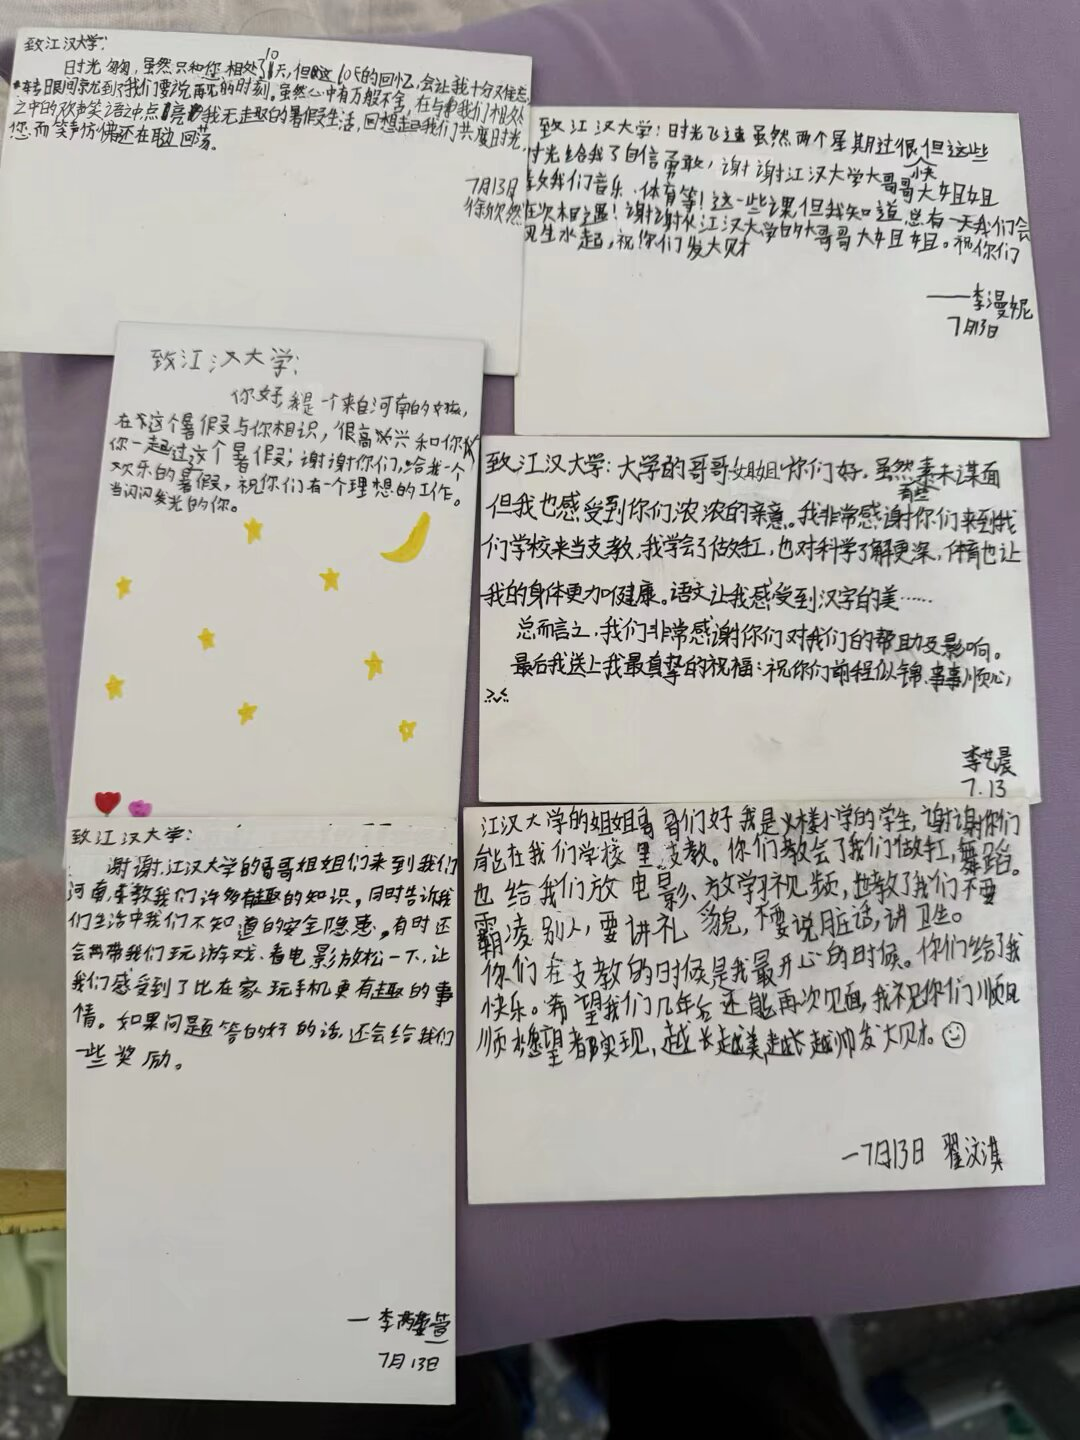 致江汉大学:
时光匆匆,虽然只和您相处了10天,但这10天的回忆,会让我十分难忘,
转眼间就到了我们要说再见的时刻。虽然心中有万般不舍,在与我们相处
之中的欢声笑语中,点亮我无趣的暑假生活,回想起我们共度时光,
您而笑声仿佛还在耳边回荡。
7月13日
徐欣然
致江汉大学:时光飞速虽然两个星期过很快但这些
时光给我了自信勇敢,谢谢江汉大学大哥哥大姐姐
教我们音乐、体育等!这一些课但我知道总有一天我们会
在次相遇!谢谢从江汉大学的大哥哥大姐姐。祝你们
风生水起,祝你们发大财
——李漫妮
7月13日
致江汉大学:
你好,我是一个来自河南的女孩,
在这个暑假与你相识,很高兴和你
你一起过这个暑假;谢谢你们,给我一个
欢乐的暑假,祝你们有一个理想的工作。
当闪闪发光的你。
致江汉大学:大学的哥哥姐姐你们好。虽然素未谋面
但我也感受到你们浓浓的亲意。我非常感谢你们来到我
们学校来当支教,我学会了做缸,也对科学有些了解更深,体育也让
我的身体更加健康。语文让我感受到汉字的美……
总而言之,我们非常感谢你们对我们的帮助及影响。
最后我送上我最真挚的祝福:祝你们前程似锦、事事顺心,
李艺晨
7.13
致江汉大学:
谢谢江汉大学的哥哥姐姐们来到我们
河南,来教我们许多有趣的知识,同时告诉我
们生活中我们不知道的安全隐患,有时还
会带我们玩游戏、看电影放松一下,让
我们感受到了比在家玩手机更有趣的事
情。如果问题答的好的话,还会给我们
一些奖励。
一李
7月13日
江汉大学的姐姐哥哥们好我是义楼小学的学生,谢谢你们
能在我们学校里支教。你们教会了我们做缸,舞蹈。
也给我们放电影、放学习视频,也教了我们不要
霸凌别人,要讲礼貌,不要说脏话,讲卫生。
你们在支教的时候是我最开心的时候。你们给了我
快乐。希望我们几年后还能再次见面,我祝你们顺风
顺水愿望都实现,越长越美越长越帅发大财。
一7月13日 翟汶淇